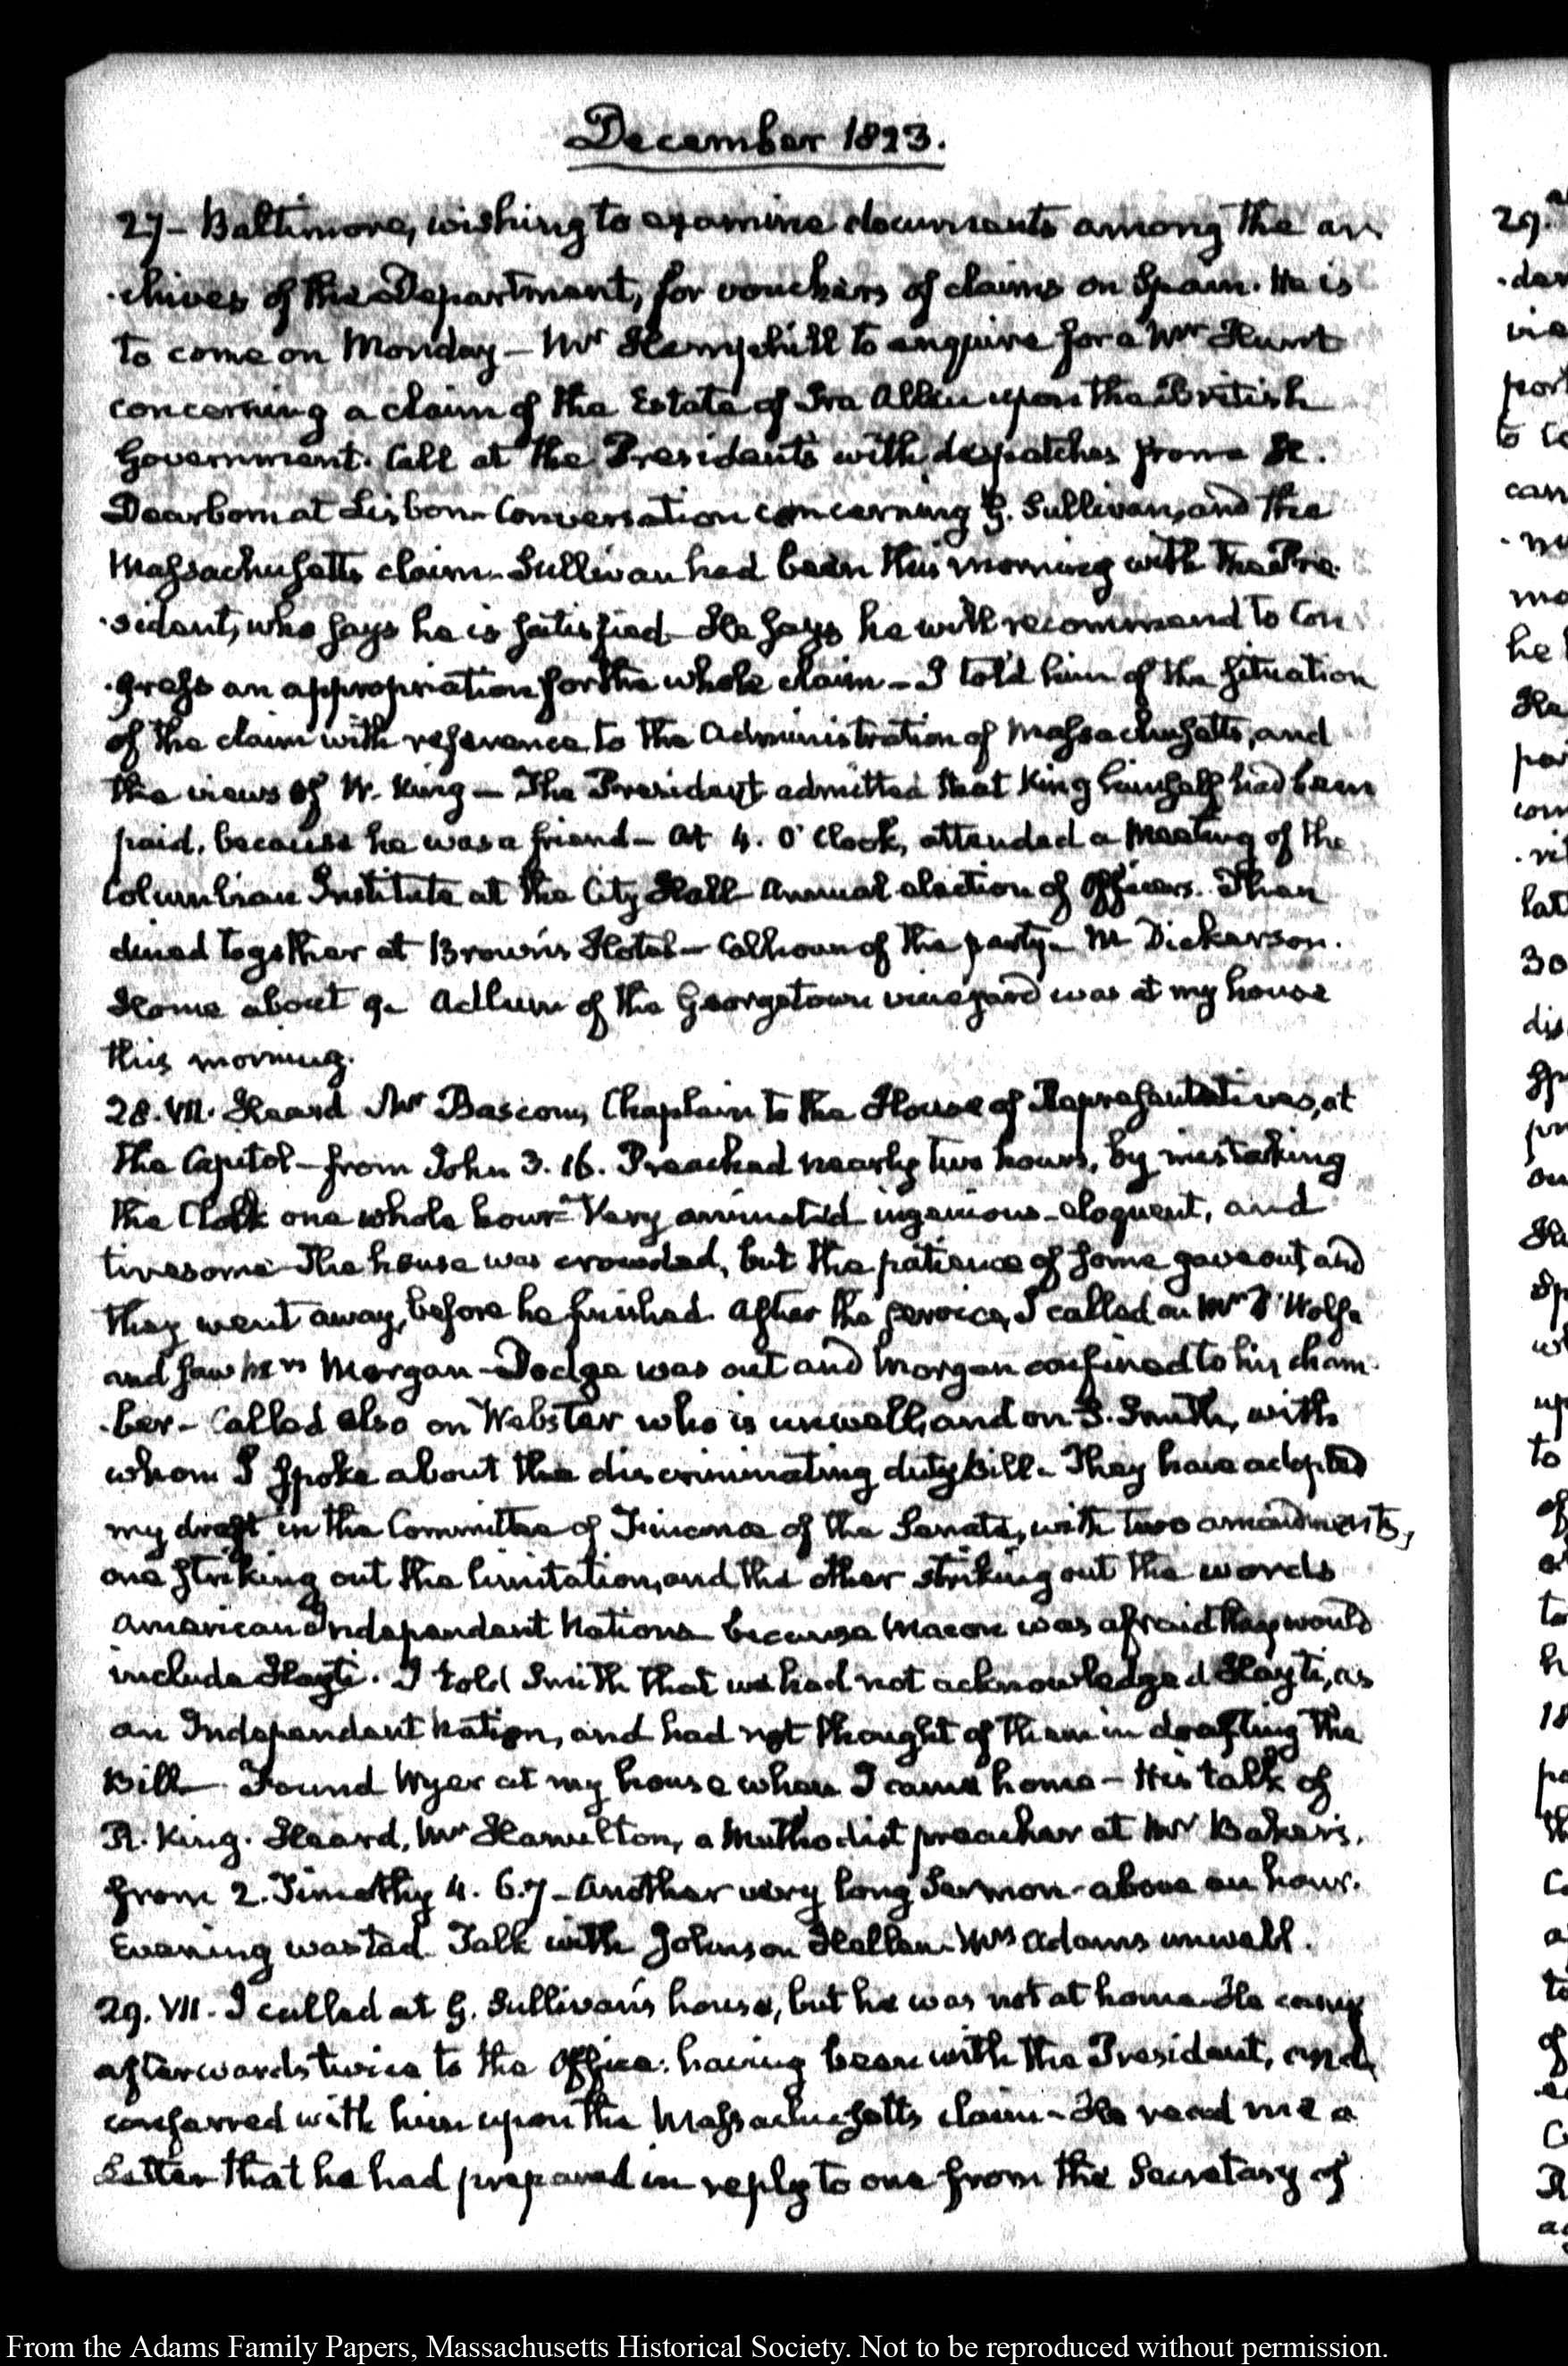 December 1823.
27- Baltimore, wishing to examine documents among the ar-
-chives of the Department, for vouchers of claims on Spain. He is
to come on Monday - Mr Hemphill to enquire for a Mr Hunt
concerning a claim of the Estate of Ira Allen upon the British
Government. Call at the President's with despatches from H.
Dearborn at Lisbon. Conversation concerning G. Sullivan, and the
Massachusetts claim. Sullivan had been this morning with the Pre-
-sident, who says he is satisfied - He says he will recommend to Con-
-gress an appropriation for the whole claim - I told him of the situation
of the claim with reference to the Administration of Massachusetts, and
the views of W. King - The President admitted that King himself had been
paid, because he was a friend - At 4. O'Clock, attended a Meeting of the
Columbian Institute at the City Hall - Annual election of Officers. Then
dined together at Brown's Hotel - Calhoun of the party - M Dickerson.
Home about 9 - Adlum of the Georgetown vineyard was at my house
this morning.
28. VII. Heard Mr Bascom, Chaplain to the House of Representatives, at
the Capitol - from John 3. 16. Preached nearly two hours, by mistaking
the Clock one whole hour - Very animated ingenious - eloquent, and
tiresome - The house was crowded, but the patience of some gave out, and
they went away, before he finished. After the service, I called on Mr D'Wolfe
and saw Morgan - Dodge was out and Morgan confined to his cham-
-ber - Called also on Webster who is unwell, and on S. Smith, with
whom I spoke about the discriminating duty Bill - They have adopted
my draft in the Committee of Finance of the Senate, with two amendments,
one striking out the limitation, and the other striking out the words
American Independent Nations because Macon was afraid they would
include Hayti. I told Smith that we had not acknowledged Hayti, as
an Independent Nation, and had not thought of them in drafting the
Bill - Found Wyer at my house when I came home - His talk of
R. King. Heard, Mr Hamilton, a Methodist preacher at Mr Baker's,
from 2. Timothy 4. 6.7 - Another very long Sermon - above an hour.
Evening wasted. Talk with Johnson Hellen - Mrs Adams unwell.
29. VII. I called at G. Sullivan's house, but he was not at home. He came
afterwards twice to the Office: having been with the President, and
conferred with him upon the Massachusetts claim - He read me a
Letter that he had prepared in reply to one from the Secretary of
29.
to
he
30
to
to
18
to
From the Adams Family Papers, Massachusetts Historical Society. Not to be reproduced without permission.